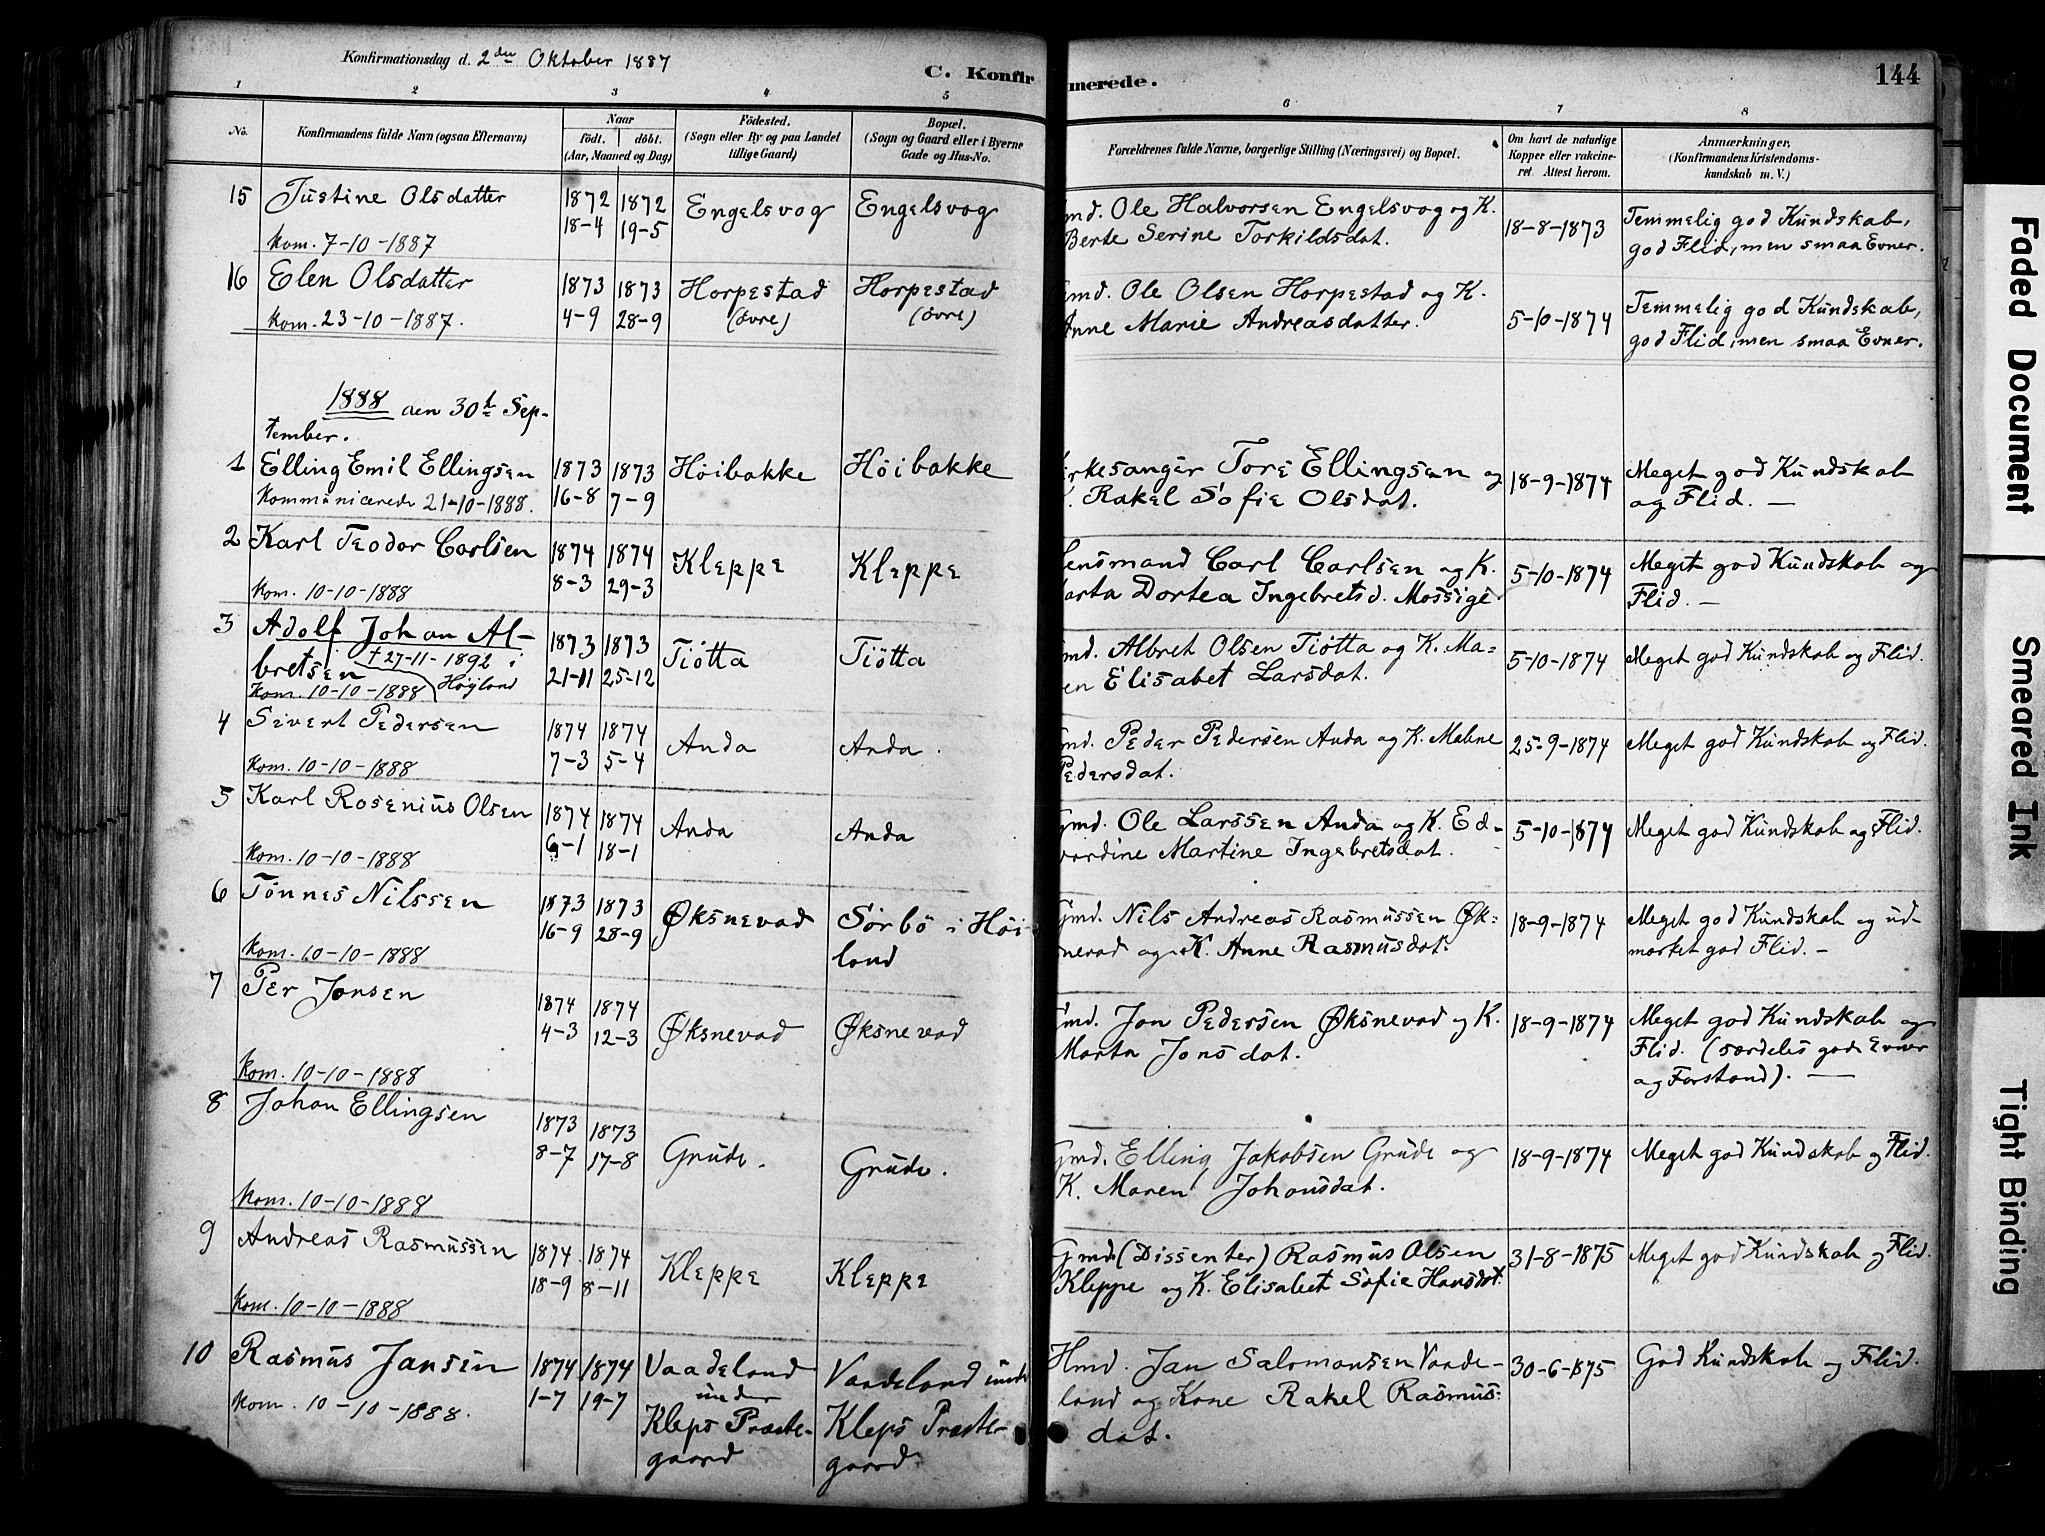 Konfirmationsdag d. 2den Oktober 1887
C. Konfirmerede.
144
1 2 3 4 5 6 7 8
No.
Konfirmandens fulde Navn (ogsaa Efternavn)
Naar
födt. döbt.
(Aar, Maaned og Dag)
Födested.
(Sogn eller By og paa Landet
tillige Gaard)
Bopæl.
(Sogn og Gaard eller i Byerne
Gade og Hus-No.
Forældrenes fulde Navne, borgerlige Stilling (Næringsvei) og Bopæl.
Om havt de naturlige
Kopper eller vakcine-
ret. Attest herom.
Anmærkninger,
(Konfirmandens Kristendoms-
kundskab m. V.)
15 Justine Olsdatter
kom. 7-10-1887
1872 1872
18-4 19-5
Engelsvog
Engelsvog
md. Ole Halvorsen Engelsvog og K.
Berte Serine Torkildsdat.
18-8-1873
Temmelig god Kundskab,
god Flid, men smaa Evner.
16 Elen Olsdatter
kom. 23-10-1887.
1873 1873
4-9 28-9
Horpestad
(övre)
Horpestad
(övre)
md. Ole Olsen Horpestad og K.
Anne Marie Andreasdatter.
5-10-1874
Temmelig god Kundskab,
god Flid, men smaa Evner.
1888 den 30te Sep-
tember.
1 Elling Emil Ellingsen
Kommunicerede 21-10-1888.
1873 1873
16-8 7-9
Höibakke
Höibakke
rkesanger Tore Ellingsen og
K. Rakel Sofie Olsdat.
18-9-1874
Meget god Kundskab
og Flid. —
2 Karl Teodor Carlsen
kom. 10-10-1888
1874 1874
8-3 29-3
Kleppe
Kleppe
ensmand Carl Carlsen og K.
arta Dortea Ingebretsd. Mossige.
5-10-1874
Meget god Kundskab og
Flid. —
3 Adolf Johan Al-
bretsen † 27-11-1892 i
Kom. 10-10-1888 Högland
1873 1873
21-11 25-12
Tiötta
Tiötta
md. Albret Olsen Tiötta og K. Ma=
en Elisabet Larsdat.
5-10-1874
Meget god Kundskab og Flid.
4 Sivert Pedersen
kom. 10-10-1888
1874 1874
7-3 5-4
Anda
Anda.
md. Peder Pedersen Anda og K. Malene
Pedersdat.
25-9-1874
Meget god Kundskab og Flid.
5 Karl Rosenius Olsen
kom. 10-10-1888
1874 1874
6-1 18-1
Anda
Anda
Gmd. Ole Larssen Anda og K. Ed-
vardine Martine Ingebretsdat.
5-10-1874
Meget god Kundskab og Flid.
6 Tönnes Nilssen
kom. 10-10-1888
1873 1873
16-9 28-9
Øksnevad
Sörbö i Höi-
land
Gmd. Nils Andreas Rasmussen Øk=
nevad og K. Anne Rasmusdat.
18-9-1874
Meget god Kundskab og ud-
mærket god Flid. —
7 Per Jonsen
kom. 10-10-1888
1874 1874
4-3 12-3
Øksnevad
Øksnevad
Gmd. Jon Pedersen Øksnevad og K.
Marta Jonsdat.
18-9-1874
Meget god Kundskab og
Flid. (særdeles gode Evner
og Forstand). —
8 Johan Ellingsen
kom. 10-10-1888
1873 1873
8-7 17-8
Grude.
Grude.
Gmd. Elling Jakobsen Grude og
K. Maren Johansdat.
18-9-1874
Meget god Kundskab og Flid.
9 Andreas Rasmussen
kom. 10-10-1888
1874 1874
18-9 8-11
Kleppe
Kleppe
Gmd. (Dissenter) Rasmus Olsen
Kleppe og K. Elisabet Sofie Hansdat.
31-8-1875
Meget god Kundskab og Flid.
10 Rasmus Jansen
kom. 10-10-1888.
1874 1874
1-7 19-7
Vaadeland
under
Kleps Præste-
gaard
Vaadeland under
Kleps Præste-
gaard.
Hmd. Jan Salomonsen Vaade-
land og Kone Rakel Rasmus-
dat.
30-6-1875
God Kundskab og Flid.
Faded Document
Smeared Ink
Tight Binding